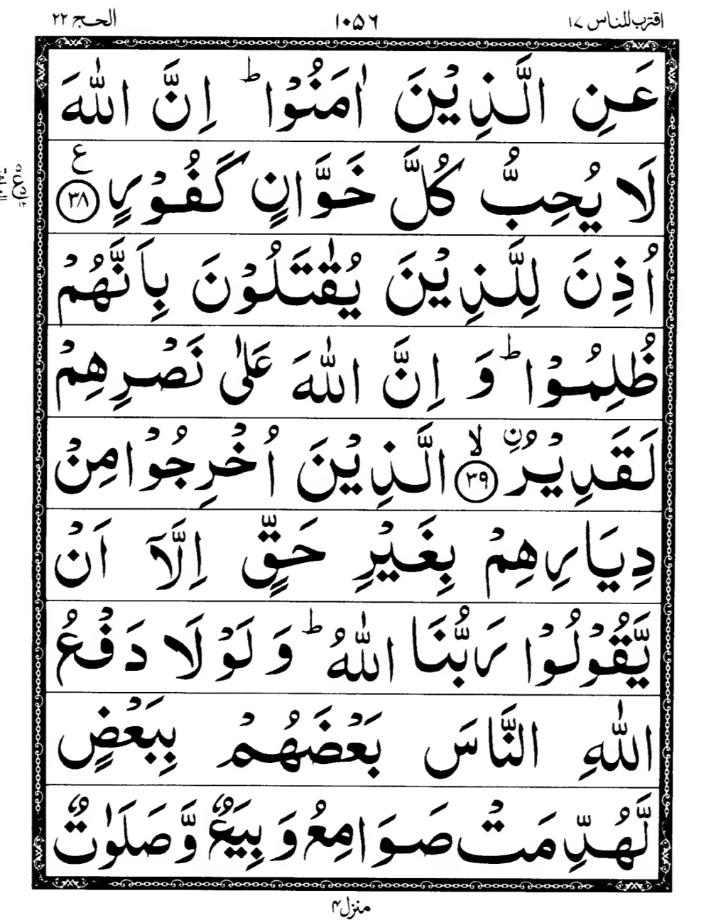 اقترب للناس ۱۷ ۱۰۵۶ الحج ۲۲
عَنِ الَّذِيْنَ اٰمَنُوْا ؕ اِنَّ اللّٰهَ
لَا يُحِبُّ كُلَّ خَوَّانٍ كَفُوْرٍ ﴿۳۸﴾ ع
اُذِنَ لِلَّذِيْنَ يُقٰتَلُوْنَ بِاَنَّهُمْ
ظُلِمُوْا ؕ وَ اِنَّ اللّٰهَ عَلٰى نَصْرِهِمْ
لَقَدِيْرُ ۨ ﴿۳۹﴾ ۙ الَّذِيْنَ اُخْرِجُوْا مِنْ
دِيَارِهِمْ بِغَيْرِ حَقٍّ اِلَّاۤ اَنْ
يَّقُوْلُوْا رَبُّنَا اللّٰهُ ؕ وَ لَوْ لَا دَفْعُ
اللّٰهِ النَّاسَ بَعْضَهُمْ بِبَعْضٍ
لَّهُدِّمَتْ صَوَامِعُ وَ بِيَعٌ وَّ صَلَوٰتٌ
منزل ۴